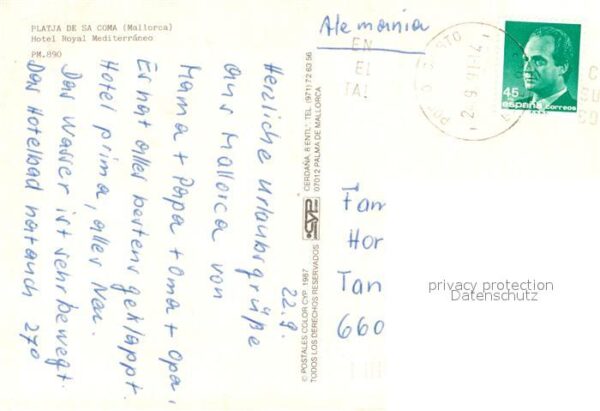 PLATJA DE SA COMA (Mallorca)
Hotel Royal Mediterráneo
PM.890
22.9.
Herzliche Urlaubsgrüße
aus Mallorca von
Mama + Papa + Oma + Opa,
Es hat alles bestens geklappt
Hotel prima, alles Neu.
Das Wasser ist sehr bewegt.
Das Hotelbad hat auch 27°
© POSTALES COLOR CYP, 1987
TODOS LOS DERECHOS RESERVADOS
CYP
CERDAÑA, 8 ENTLº TEL. (971) 72 63 56
07012 PALMA DE MALLORCA
Alemania
EN
EL
TAL
45
españa
correos
Fam
Hor
Tan
660
privacy protection
Datenschutz